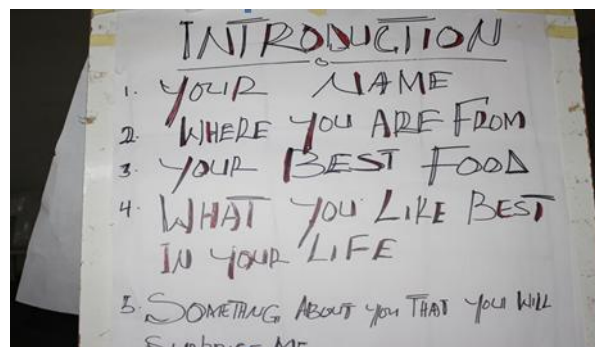 INTRODUCTION
1. YOUR NAME
2. WHERE YOU ARE FROM
3. YOUR BEST FOOD
4. WHAT YOU LIKE BEST
IN YOUR LIFE
5. SOMETHING ABOUT YOU THAT YOU WILL
ME